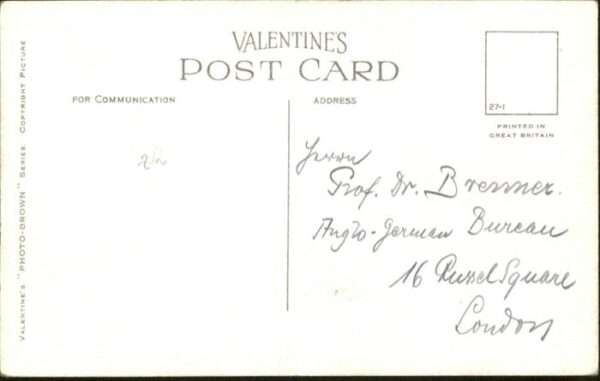 VALENTINE'S
POST CARD
FOR COMMUNICATION
ADDRESS
27-1
PRINTED IN
GREAT BRITAIN
Herrn
Prof. Dr. Bremner.
Anglo-German Bureau
16 Russel Square
London
VALENTINE'S "PHOTO-BROWN" SERIES. COPYRIGHT PICTURE